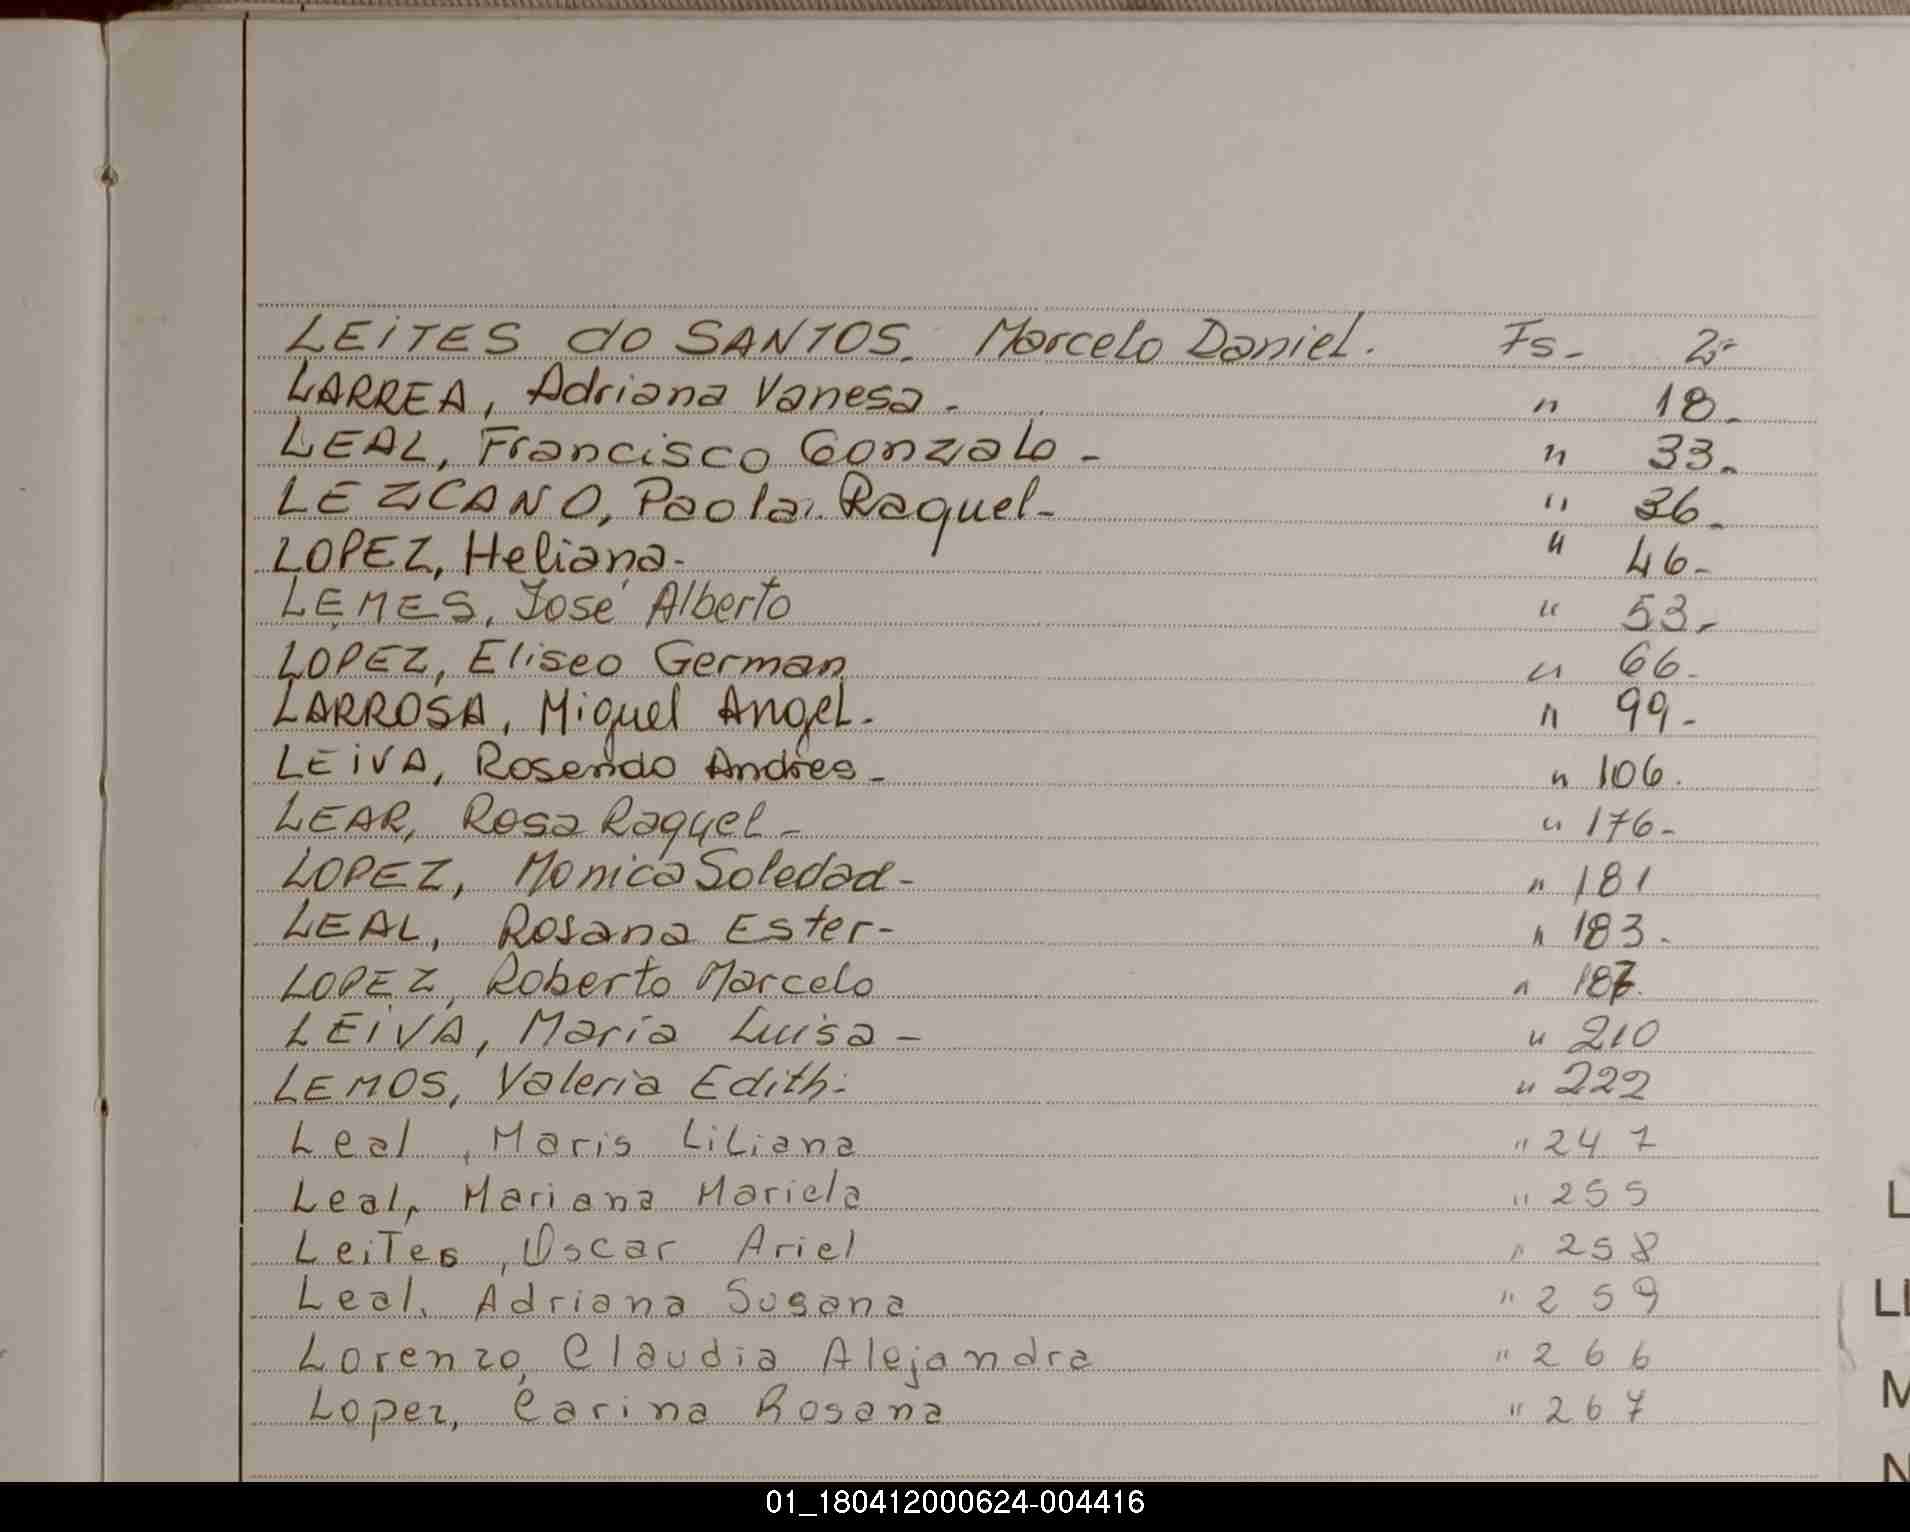 LEiTES do SANTOS. Marcelo Daniel. Fs- 2-
LARREA, Adriana Vanesa - " 18-
LEAL, Francisco Gonzalo - " 33-
LEZCANO, Paola Raquel- " 36-
LOPEZ, Heliana- " 46-
LEMES, José Alberto " 53-
LOPEZ, Eliseo German " 66-
LARROSA, Miguel Angel- " 99-
LEiVA, Rosendo Andres- " 106.
LEAR, Rosa Raquel- " 176-
LOPEZ, Monica Soledad- " 181
LEAL, Rosana Ester- " 183-
LOPEZ, Roberto Marcelo " 187.
LEiVA, Maria Luisa - " 210
LEMOS, Valeria Edith- " 222
Leal, Maris Liliana " 247
Leal, Mariana Mariela " 255
Leites, Oscar Ariel " 258
Leal, Adriana Susana " 259
Lorenzo, Claudia Alejandra " 266
Lopez, Carina Rosana " 267
L
LL
M
N
01_180412000624-004416